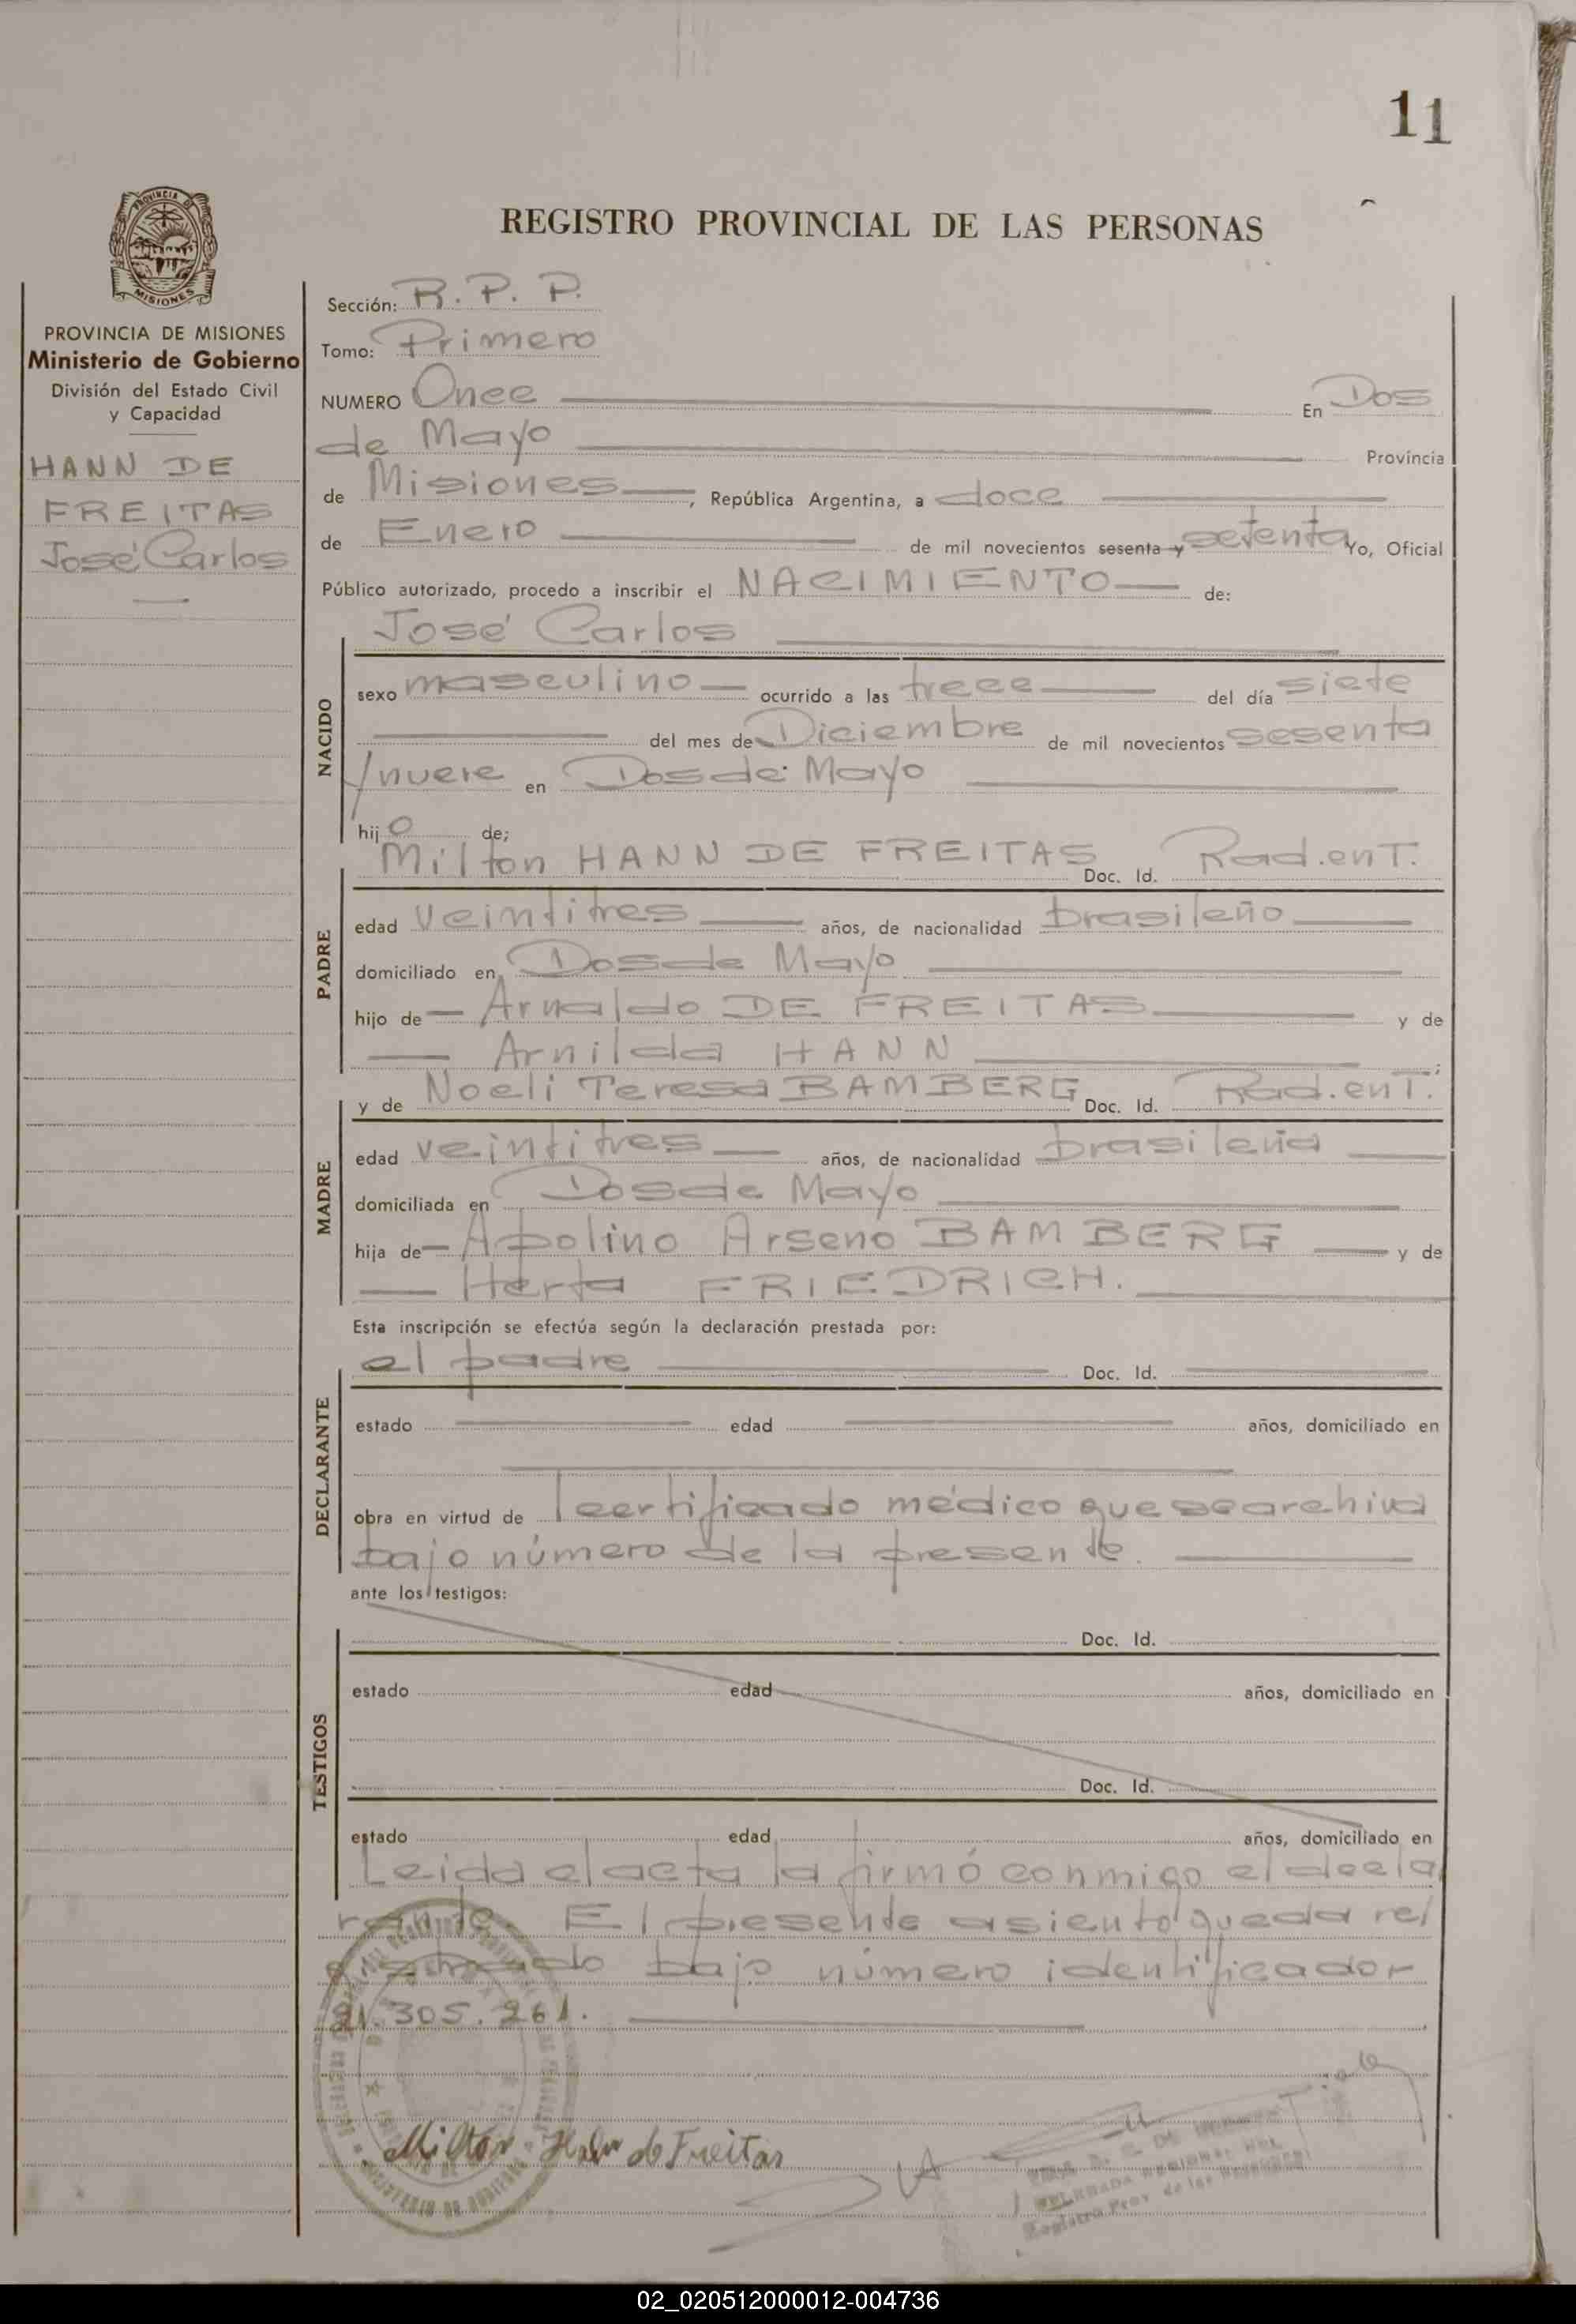 11
PROVINCIA DE
MISIONES
REGISTRO PROVINCIAL DE LAS PERSONAS
PROVINCIA DE MISIONES
Ministerio de Gobierno
División del Estado Civil
y Capacidad
HANN DE
FREITAS
José Carlos
Sección: R. P. P.
Tomo: Primero
NUMERO Once En Dos
de Mayo Provincia
de Misiones, República Argentina, a doce
de Enero de mil novecientos sesenta y setenta Yo, Oficial
Público autorizado, procedo a inscribir el NACIMIENTO de:
José Carlos
NACIDO
sexo masculino ocurrido a las trece del día siete
del mes de Diciembre de mil novecientos sesenta
y nueve en Dos de Mayo
hijo de;
Milton HANN DE FREITAS Doc. Id. Rad. en T.
PADRE
edad veintitres años, de nacionalidad brasileño
domiciliado en Dos de Mayo
hijo de Arnaldo DE FREITAS y de
Arnilda HANN ;
y de Noeli Teresa BAMBERG Doc. Id. Rad. en T.
MADRE
edad veintitres años, de nacionalidad brasileña
domiciliada en Dos de Mayo
hija de Apolino Arseno BAMBERG y de
Herta FRIEDRICH.
Esta inscripción se efectúa según la declaración prestada por:
el padre Doc. Id.
DECLARANTE
estado edad años, domiciliado en
obra en virtud de certificado médico que se archiva
bajo número de la presente.
ante los testigos:
Doc. Id.
TESTIGOS
estado edad años, domiciliado en
Doc. Id.
estado edad años, domiciliado en
Leida el acta la firmó conmigo el decla
rante. El presente asiento queda re/
gistrado bajo número identificador
21.305.261.
Milton Hann de Freitas
Registro Prov. de las Personas
02_020512000012-004736